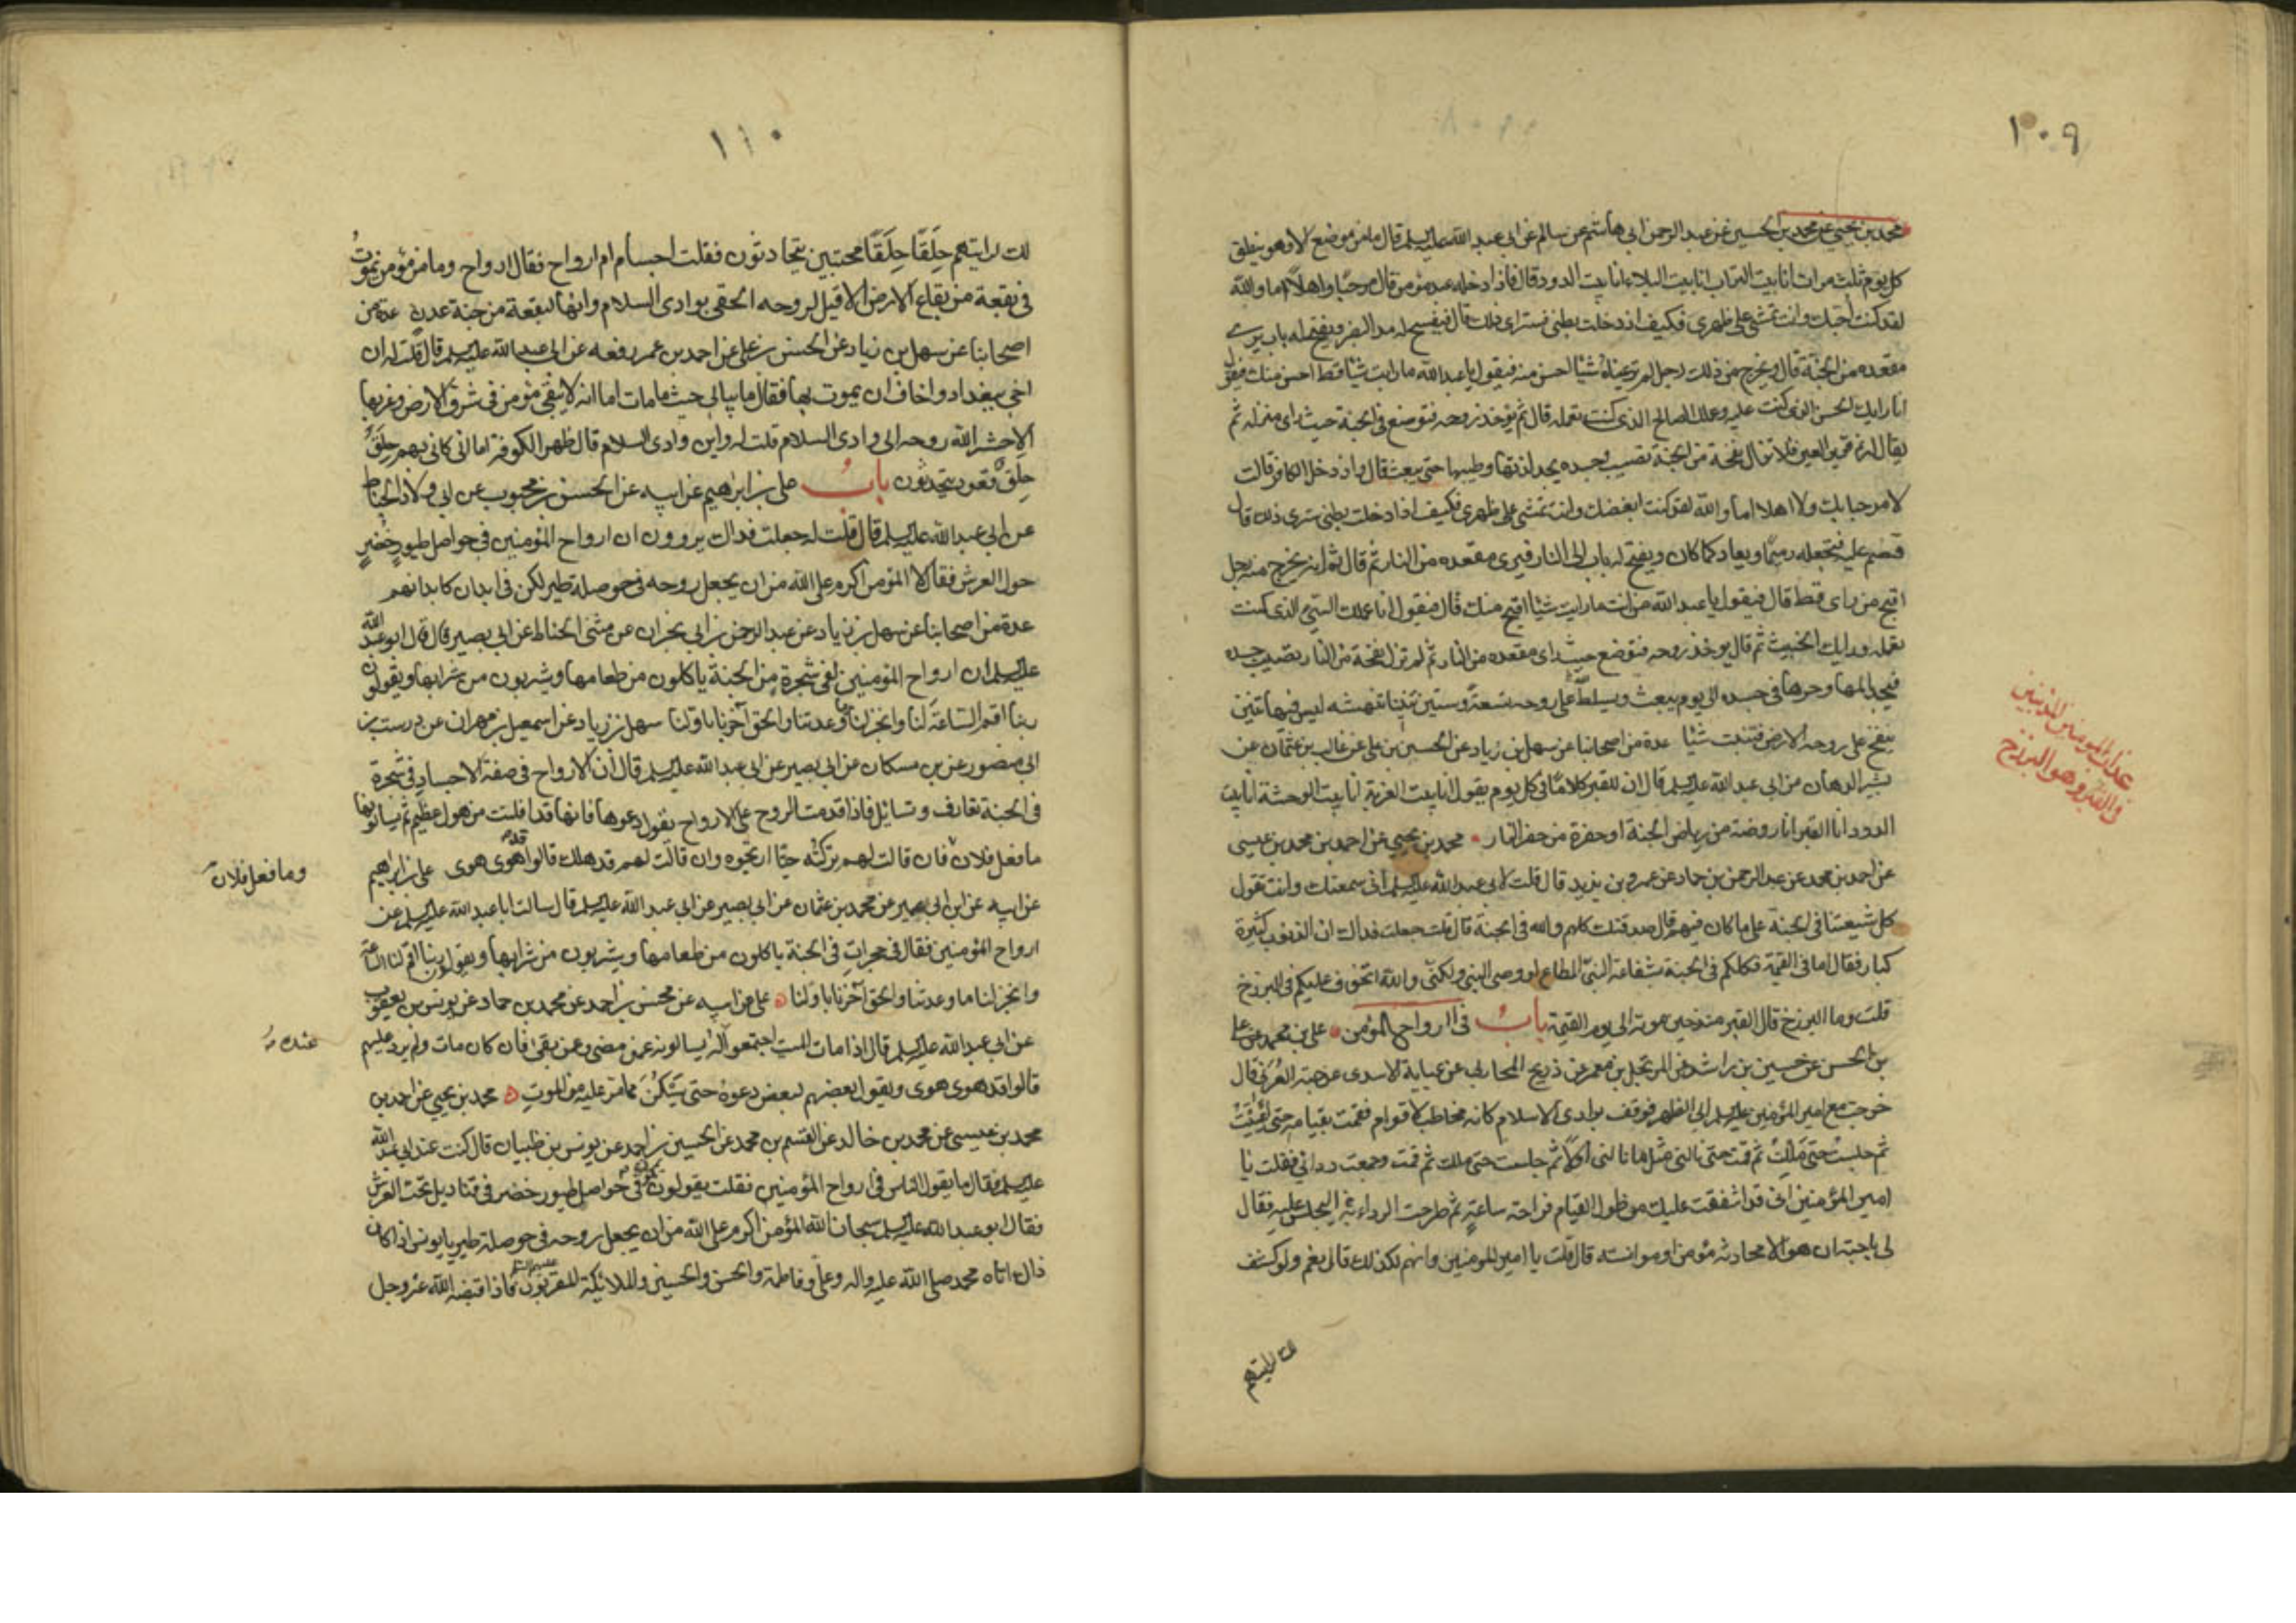 ١٠٩
محمد بن يحيى عن محمد بن الحسين عن عبد الرحمن ابى هاشم عن سالم عن ابى عبد الله عليه السلم قال ما من موضع الا وهو ينطق
كل يوم ثلث مرات انا بيت التراب انا بيت البلاء انا بيت الدود قال فاذا دخله عبد مؤمن قال مرحبًا واهلاً اما والله
لقد كنت احبك وانت تمشى على ظهرى فكيف اذ دخلت بطنى فسترى ذلك قال فيفسح له مد البصر ويفتح له باب يرى
مقعده من الجنة قال ويخرج من ذلك رجل لم تر عيناه شيئا احسن منه فيقول يا عبد الله ما رايت شيئا قط احسن منك فيقول
انا رايك الحسن الذى كنت عليه وعملك الصالح الذى كنت تعمله قال ثم يؤخذ روحه فتوضع فى الجنة حيث راى منزله ثم
يقال له نم قرير العين فلا تزال نفخة من الجنة تصيب جسده يجد لذتها وطيبها حتى يبعث قال واذ دخل الكافر قالت
لا مرحبا بك ولا اهلا اما والله لقد كنت ابغضك وانت تمشى على ظهرى فكيف اذا دخلت بطنى سترى ذلك قال
فتضم عليه فتجعله رميمًا ويعاد كما كان ويفتح له باب الى النار فيرى مقعده من النار ثم قال ثم انه يخرج منه رجل
اقبح من راى قط قال فيقول يا عبد الله من انت ما رايت شيئا اقبح منك قال فيقول انا عملك السيئ الذى كنت
تعمله ورايك الخبيث ثم قال يوخذ روحه فتوضع حيث راى مقعده من النار ثم لم تزل نفخة من النار تصيب جسده
فيجد المها وحرها فى جسده الى يوم يبعث ويسلط الله على روحه تسعة وستين تنينا تنهشه ليس فيها تنين
ينفخ على روحه الارض فتنبت شيئا عدة من اصحابنا عن سهل بن زياد عن الحسين بن على عن غالب بن عثمان عن
بشير الدهان عن ابى عبد الله عليه السلم قال ان للقبر كلامًا فى كل يوم يقول انا بيت الغربة انا بيت الوحشة انا بيت
الدود انا القبر انا روضة من رياض الجنة او حفرة من حفر النار محمد بن يحيى عن احمد بن محمد بن عيسى
عن احمد بن محمد عن عبد الرحمن بن حماد عن عمرو بن يزيد قال قلت لابى عبد الله عليه السلم انى سمعتك وانت تقول
كل شيعتنا فى الجنة على ما كان فيهم قال صدقتك كلهم والله فى الجنة قال قلت جعلت فداك ان الذنوب كثيرة
كبار فقال اما فى القيمة فكلكم فى الجنة بشفاعة النبى المطاع او وصى النبى ولكنى والله اتخوف عليكم فى البرزخ
قلت وما البرزخ قال القبر منذ حين موته الى يوم القيمة باب فى ارواح المؤمن على بن محمد عن على
بن الحسن عن حسين بن راشد عن المرتجل بن معمر عن ذريح المحاربى عن عباية الاسدى عن حبة العُرَنى قال
خرجت مع امير المؤمنين عليه السلم الى الظهر فوقف بوادى الاسلام كانه مخاطب لاقوام فقمت بقيامه حتى اعْيَيْتُ
ثم جلست حتى مَلِلْتُ ثم قمت حتى نالنى مثل ما نالنى اولاً ثم جلست حتى مللت ثم قمت وجمعت ردائى فقلت يا
امير المؤمنين انى قد اشفقت عليك من طول القيام فراحة ساعةٍ ثم طرحت الرداء ليجلس عليه فقال
لى يا حبة ان هو الا محادثة مؤمن او موانسته قال قلت يا امير المؤمنين وانهم لكذلك قال نعم ولو كشف
لك لرايتهم
عذاب المومنين المذنبين
فى القبر وهو البرزخ
١١٠
لك لرايتهم حِلَقًا حِلَقًا محتبين يتحادثون فقلت اجسام ام ارواح فقال ارواح وما من مؤمن يموتُ
فى بقعة من بقاع الارض الا قيل لروحه الحقى بوادى السلام وانها لبقعة من جنة عدنٍ عدة من
اصحابنا عن سهل بن زياد عن الحسن بن على عن احمد بن عمر رفعه عن ابى عبد الله عليه السلم قال قلت له ان
اخى ببغداد واخاف ان يموت بها فقال ما يبالى حيث ما مات اما انه لا يبقى مؤمن فى شرق الارض وغربها
الا حشر الله روحه الى وادى السلام قلت له واين وادى السلام قال ظهر الكوفة اما انى كانى بهم حِلَقٌ
حِلَقٌ قعود يتحدثون باب على بن ابراهيم عن ابيه عن الحسن بن محبوب عن ابى ولاد الحناط
عن ابى عبد الله عليه السلم قال قلت له جعلت فداك يروون ان ارواح المؤمنين فى حواصل طيورٍ خُضْرٍ
حول العرش فقال لا المؤمن اكرم على الله من ان يجعل روحه فى حوصلة طير لكن فى ابدان كابدانهم
عدة من اصحابنا عن سهل بن زياد عن عبد الرحمن بن ابى نجران عن مثنى الحناط عن ابى بصير قال قال ابو عبد الله
عليه السلم ان ارواح المؤمنين لفى شجرة من الجنة ياكلون من طعامها ويشربون من شرابها ويقولون
ربنا اقم الساعَة لنا وانجز لنا ما وعدتنا والحق آخرنا باولنا سهل بن زياد عن اسمعيل بن مهران عن درست بن
ابى منصور عن بن مسكان عن ابى بصير عن ابى عبد الله عليه السلم قال ان الارواح فى صفة الاجسادِ فى شجرة
فى الجنة تعارف وتسائل فاذا قدمت الروح على الارواح تقول دعوها فانها قد افلتت من هول عظيم ثم يسالونها
ما فعل فلان فان قالت لهم تركته حيّا ارتجوه وان قالت لهم قد هلك قالوا قد هوى هوى على بن ابراهيم
عن ابيه عن ابن ابى عمير عن محمد بن عثمان عن ابى بصير عن ابى عبد الله عليه السلم قال سالت ابا عبد الله عليه السلم عن
ارواح المؤمنين فقال فى حجراتٍ فى الجنة ياكلون من طعامها ويشربون من شرابها ويقولون ربنا اقم لنا الساعة
وانجز لنا ما وعدتنا والحق آخرنا باولنا على عن ابيه عن محسن بن احمد عن محمد بن حماد عن يونس بن يعقوب
عن ابى عبد الله عليه السلم قال اذا مات الميت اجتمعوا اليه يسالونه عمن مضى وعمن بقى فان كان مات ولم يرد عليهم
قالوا قد هوى هوى ويقول بعضهم لبعض دعوه حتى يَسْكُنَ مما مر عليه من الموتِ محمد بن يحيى عن احمد بن
محمد بن عيسى عن محمد بن خالد عن القسم بن محمد عن الحسين بن احمد عن يونس بن ظبيان قال كنت عند ابى عبد الله
عليه السلم فقال ما يقول الناس فى ارواح المؤمنين فقلت يقولون تكون فى حواصل طيور خضر فى قناديل تحت العرش
فقال ابو عبد الله عليه السلم سبحان الله المؤمن اكرم على الله من ان يجعل روحه فى حوصلة طير يا يونس اذا كان
ذلك اتاه محمد صلى الله عليه واله وعلى وفاطمة والحسن والحسين والملائكة المقربون عليهم السلم فاذا قبضه الله عز وجل
وما فعل فلان